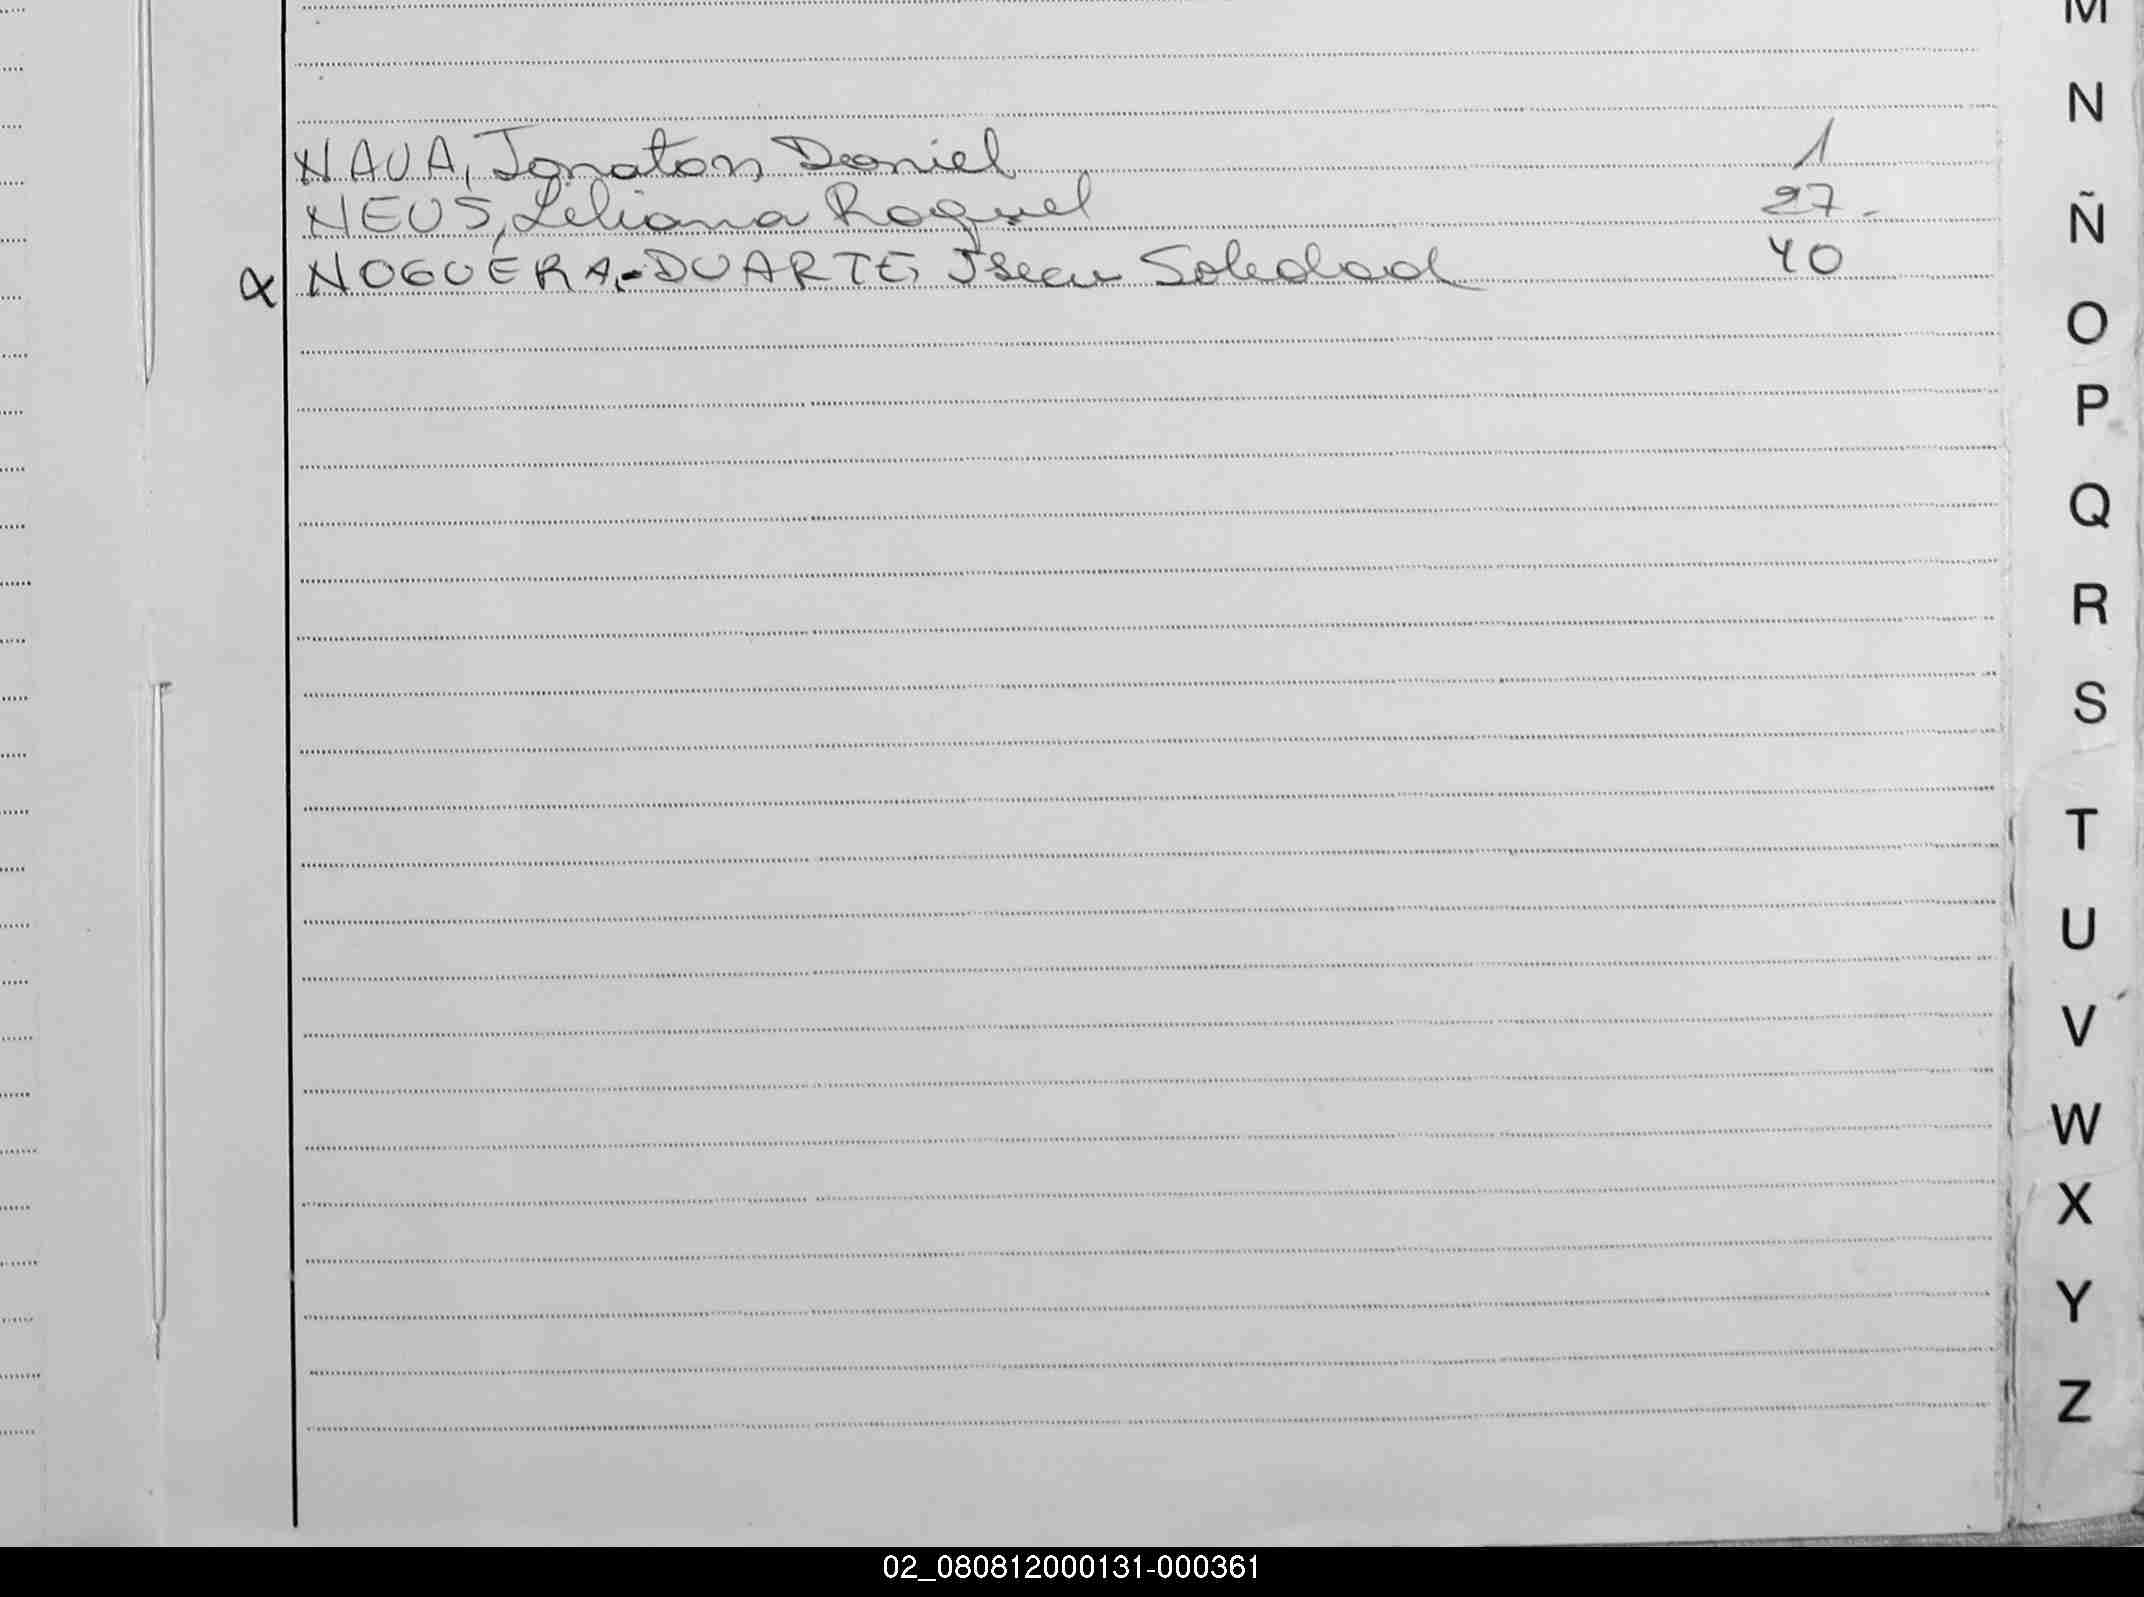 NAVA, Jonatan Daniel 1
NEUS, Liliana Raquel 27-
NOGUERA-DUARTE, Soledad 40
M
N
Ñ
O
P
Q
R
S
T
U
V
W
X
Y
Z
02_080812000131-000361